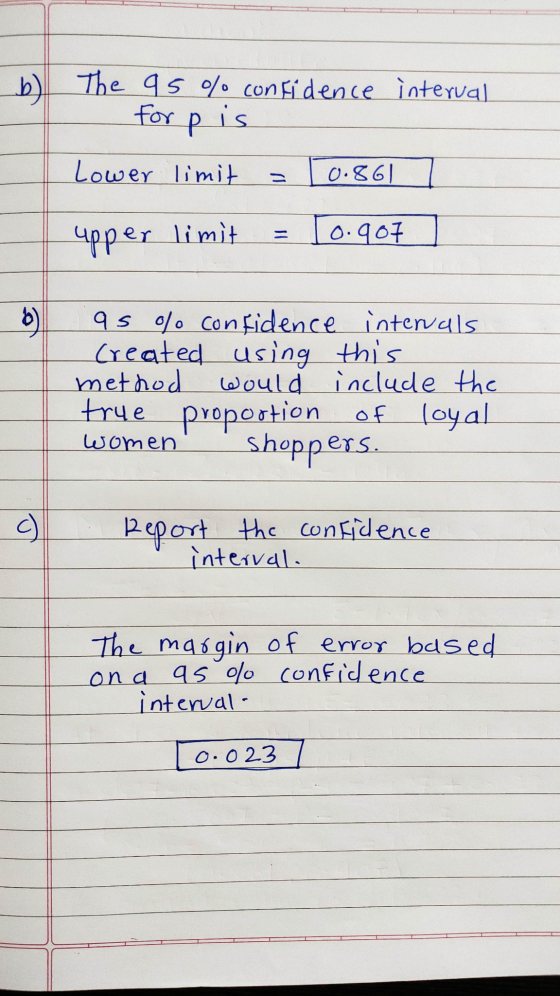 b) The 95 % confidence interval
for p is
Lower limit = 0.861
upper limit = 0.907
b) 95 % confidence intervals
Created using this
method would include the
true proportion of loyal
women shoppers.
c) Report the confidence
interval.
The margin of error based
on a 95 % confidence
interval.
0.023